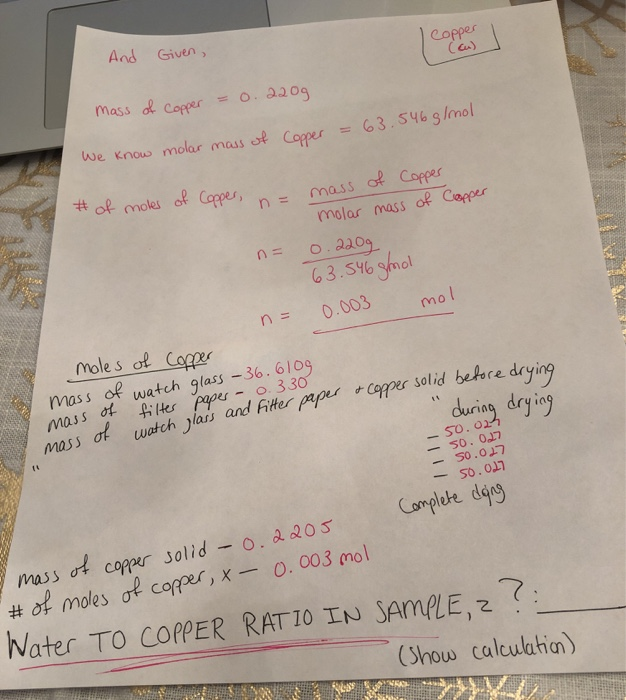 Copper
(Cu)
And Given,
Mass of Copper = 0.220g
We know molar mass of Copper = 63.546 g/mol
# of moles of Copper, n = mass of Copper
molar mass of Copper
n = 0.220g
63.546 g/mol
n = 0.003 mol
Moles of Copper
Mass of watch glass - 36.610g
Mass of filter paper - 0.330
Mass of watch glass and Filter paper + copper solid before drying
" " during drying
- 50.027
- 50.027
- 50.027
- 50.027
Complete
Mass of copper solid - 0.2205
# of moles of copper, x - 0.003 mol
Water TO COPPER RATIO IN SAMPLE, z ?:
(Show calculation)